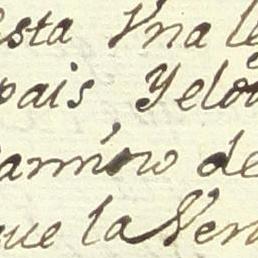 esta Una le
pais, Yelo
Camino de
que la Ven